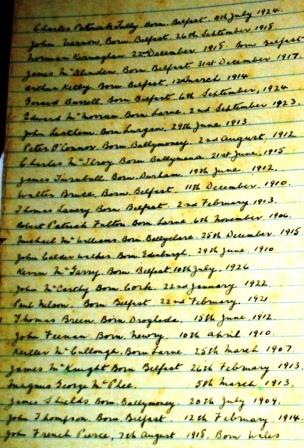 Charles Patrick Tully Born. Belfast. 11th July 1924.
John Vernon. Born. Belfast. 26th September 1918
Norman Kernaghan 22nd December 1915. Born Belfast
James McAlinden. Born. Belfast 31st December 1917.
Arthur Kelly Born. Belfast. 12 March 1914.
Born Belfast. 6th September, 1924
Edward McMorran. Born. Larne. 2nd September 1923
John Born. Lurgan. 29th June 1913.
Peter O'Connor. Born. Ballymoney. 2nd August, 1912
Charles McIlroy Born. Ballymena 21st June, 1915
James Turnbull. Born. Durham. 19th June 1912.
Walter Bruce. Born. Belfast. 11th December 1910.
Thomas Born. Belfast. 2nd February. 1913.
Robert Patrick Fulton. Born. Larne 6th November 1906.
Michael McWilliams. Born. Ballyclare. 25th December 1915
John Calder Born. Edinburgh. 29th June 1910
McGarry. Born. Belfast 10th July. 1926
John McCarthy Born. Cork. 22nd January 1922.
Paul Wilson. Born Belfast 22nd February. 1921
Thomas Breen. Born. Drogheda. 15th June 1912.
John Feenan Born. Newry 10th April 1910.
Keillor McCullough. Born Larne 25th March 1907
James McKnight Born Belfast 26th February 1913.
Magnus George McPhee. 5th March 1913.
James Shields. Born. Ballymoney 20th July 1909.
John Thompson. Born. Belfast 12th February 1914.
John French Pearce, 7th August 1918. Born Wales